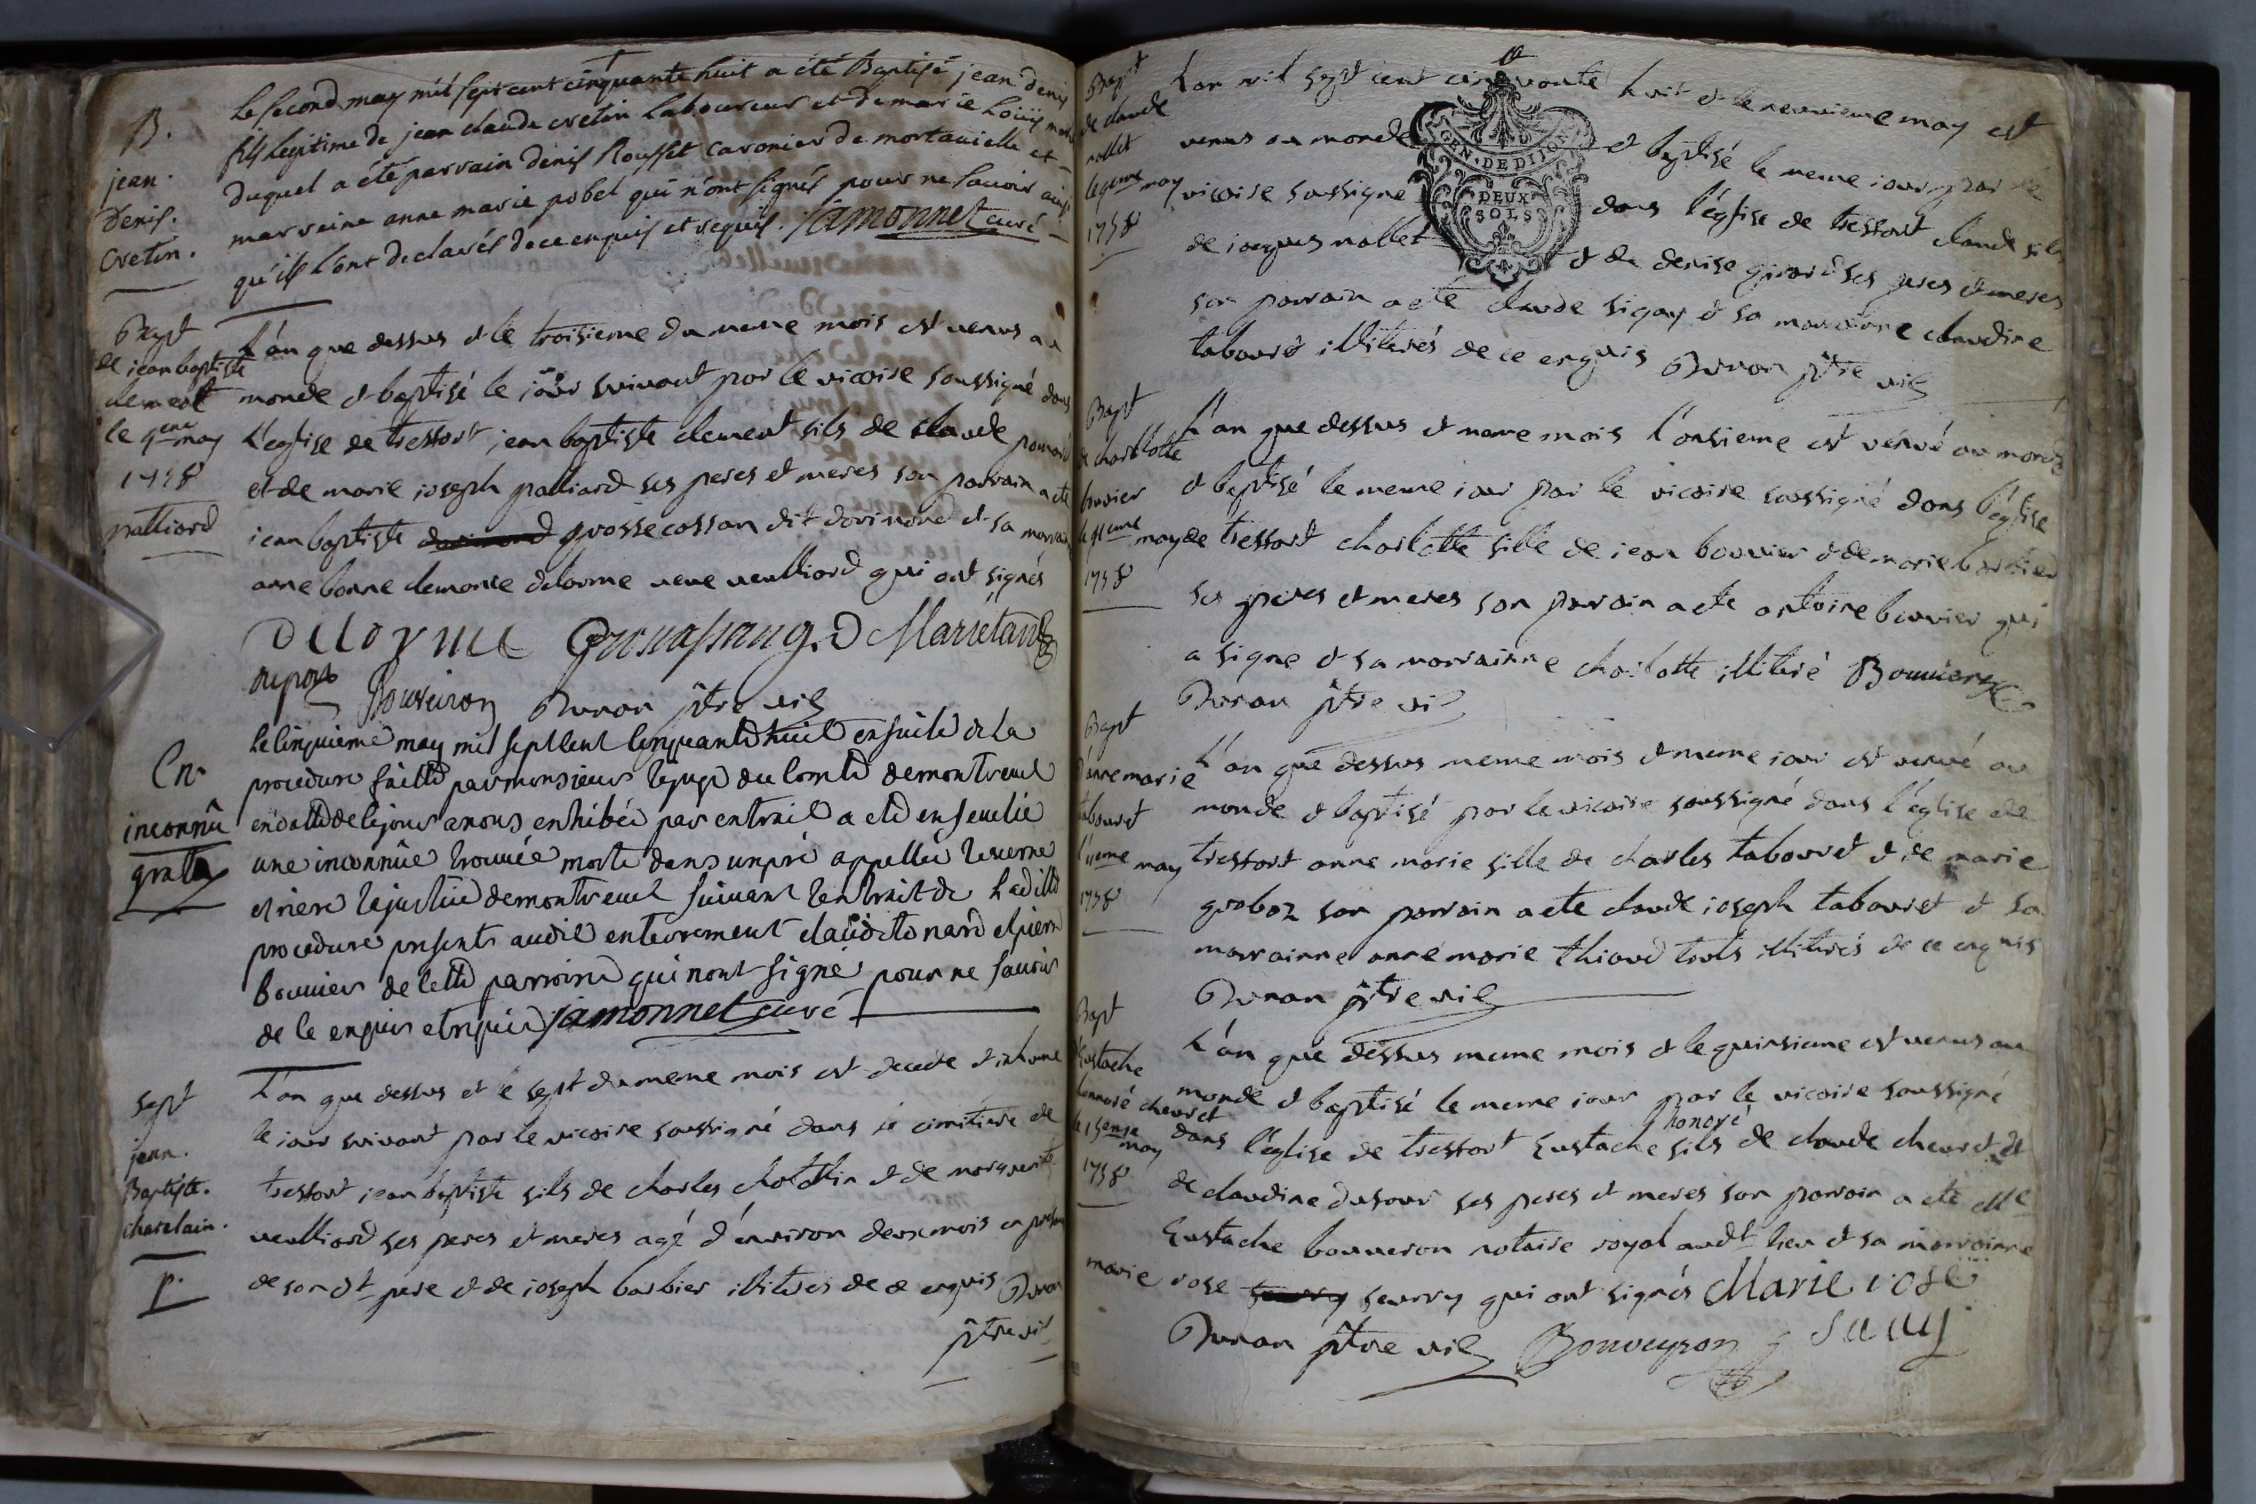 B.
jean.
Denis.
Cretin.
Le second may mil sept cent cinquante huit a été Baptisé jean denis
fils legitime de jean claude cretin Laboureur et de marie Louis
duquel a été parrain denis Rousset caronier de mortavielle et
marraine anne marie pobel qui n'ont signés pour ne savoir ainsi
qu'ils l'ont declarés de ce enquis et requis. jamonnet curé
Bapt
de jean baptiste
clement
le 4eme may
1758
palliard
L'an que dessus et le troisieme du meme mois est venus au
monde et baptisé le jour suivant par le vicaire soussigné dans
l'eglise de tressort jean baptiste clement fils de claude
et de marie joseph palliard ses peres et meres son parrain a eté
jean baptiste grossecossan dit dorimond et sa marraine
anne bonne clemence delorme veuve veulliard qui ont signés
Delorme D Marietand
dupont Bouveiron Duran ptre vic
Un
inconnû
gratis
Le cinquieme may mil sept cent cinquante huit ensuite de la
procedure faitte par monsieur le juge du comté de montreuel
en datte de ce jour a nous exhibée par extrait a eté ensevelie
une inconnûe trouvée morte dans un pré appellée
et riere la justice de montreuel suivant l'extrait de laditte
procedure presents audit enterrement claude tonard et pierre
bouvier de cette parroisse qui n'ont signé pour ne savoir
de ce enquis et requis jamonnet curé
sept
jean.
Baptiste.
chatelain.
p.
L'an que dessus et le sept du meme mois est decedé et inhumé
le jour suivant par le vicaire soussigné dans le cimitiere de
tressort jean baptiste fils de charles chatelin et de marguerite
veulliard ses peres et meres agé d'environ deux mois en presence
de son dt pere et de joseph barbier illiterés de ce enquis Duran
ptre vic
Bapt
de claude
nollet
le 9eme may
1758
GEN. DE DIJON
DEUX
SOLS
L'an mil sept cent cinquante huit et le neuvieme may est
venus au monde et baptisé le meme jour par le
vicaire soussigné dans l'église de tressort claude fils
de jacques nollet et de denise girard ses peres et meres
son parrain a eté claude sigay et sa marraine claudine
tabouret illiterés de ce enquis Duran ptre vic
Bapt
de charllotte
bouvier
le 11eme may
1758
L'an que dessus et meme mois l'onsieme est venué au monde
et baptisé le meme jour par le vicaire soussigné dans l'église
de tressort charlotte fille de jean bouvier et de marie barbier
ses peres et meres son parrain a eté antoine bouvier qui
a signé et sa marrainne charlotte illiteré Bouvier
Duran ptre vic
Bapt
d'anne marie
tabouret
l'11eme may
1758
L'an que dessus meme mois et meme jour est venué au
monde et baptisé par le vicaire soussigné dans l'église de
tressort anne marie fille de charles tabouret et de marie
groboz son parrain a eté claude joseph tabouret et sa
marrainne anne marie thiaud touts illiterés de ce enquis
Duran ptre vic
Bapt
d'Eustache
honnoré chevret
le 15eme
may
1758
L'an que dessus meme mois et le quinsieme est venus au
monde et baptisé le meme jour par le vicaire soussigné
dans l'église de tressort Eustache honoré fils de claude chevret et
de claudine dufour ses peres et meres son parrain a eté Me
Eustache bouveron notaire royal audt lieu et sa marrainne
marie rose savry qui ont signés Marie rose
Duran ptre vic Bouveyron Savy